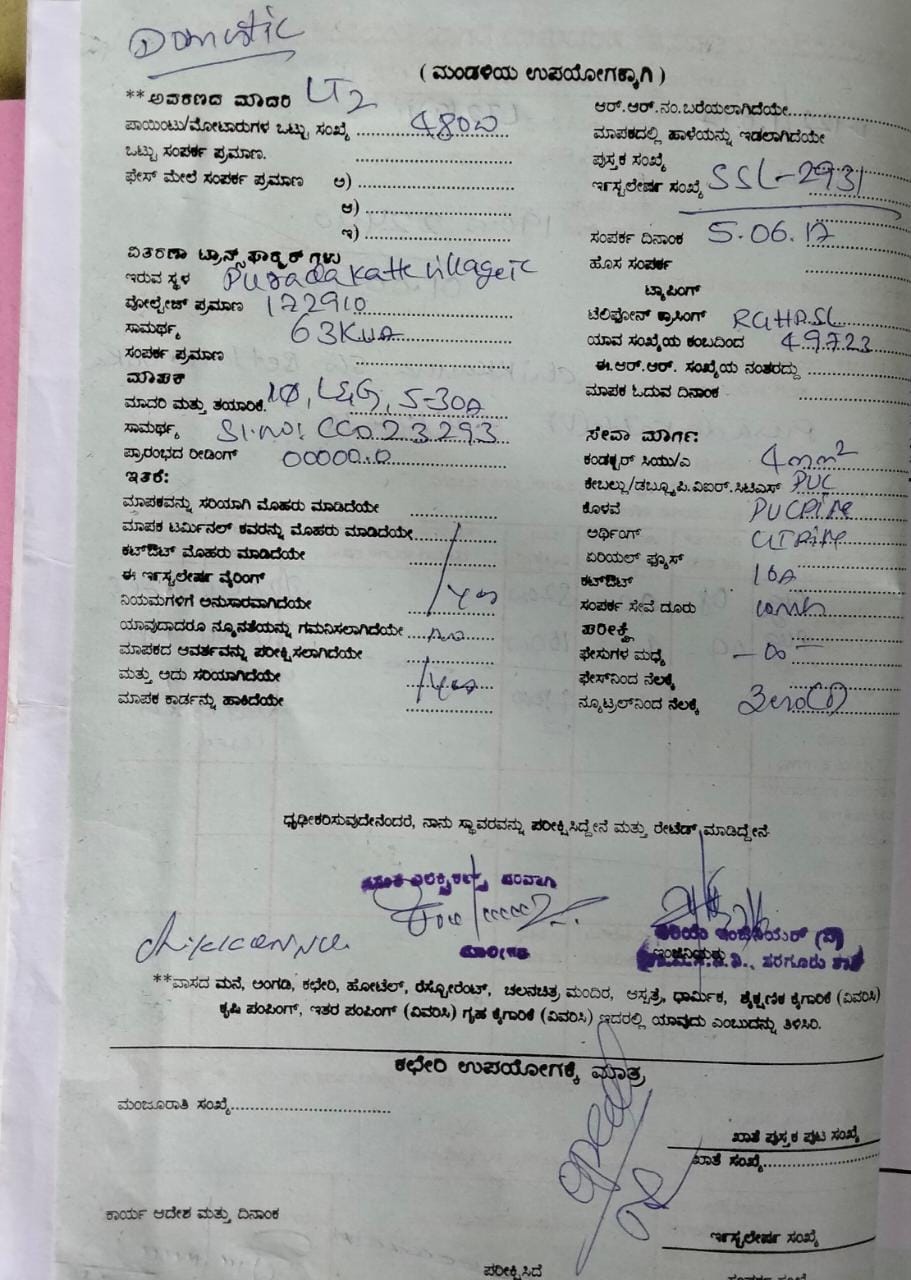 Domestic
( ಮಂಡಳಿಯ ಉಪಯೋಗಕ್ಕಾಗಿ )
**ಆವರಣದ ಮಾದರಿ LT2
ಪಾಯಿಂಟು/ಮೋಟಾರುಗಳ ಒಟ್ಟು ಸಂಖ್ಯೆ 480w
ಒಟ್ಟು ಸಂಪರ್ಕ ಪ್ರಮಾಣ.
ಫೇಸ್ ಮೇಲೆ ಸಂಪರ್ಕ ಪ್ರಮಾಣ ಅ)
ಆ)
ಇ)
ವಿತರಣಾ ಟ್ರಾನ್ಸ್‌ಫಾರ್ಮರ್ ಗಳು
ಇರುವ ಸ್ಥಳ Puradakatte village
ವೋಲ್ಟೇಜ್ ಪ್ರಮಾಣ 172910
ಸಾಮರ್ಥ್ಯ 63KVA
ಸಂಪರ್ಕ ಪ್ರಮಾಣ
ಮಾಪಕ
ಮಾದರಿ ಮತ್ತು ತಯಾರಿಕೆ 1Ø, L&G, 5-30A
ಸಾಮರ್ಥ್ಯ Sl.no: CC023293
ಪ್ರಾರಂಭದ ರೀಡಿಂಗ್ 00000.0
ಇತರೆ:
ಮಾಪಕವನ್ನು ಸರಿಯಾಗಿ ಮೊಹರು ಮಾಡಿದೆಯೇ
ಮಾಪಕ ಟರ್ಮಿನಲ್ ಕವರನ್ನು ಮೊಹರು ಮಾಡಿದೆಯೇ
ಕಟ್‌ಔಟ್ ಮೊಹರು ಮಾಡಿದೆಯೇ
ಈ ಇನ್ಸ್ಟಲೇಷನ್ ವೈರಿಂಗ್
ನಿಯಮಗಳಿಗೆ ಅನುಸಾರವಾಗಿದೆಯೇ Yes
ಯಾವುದಾದರೂ ನ್ಯೂನತೆಯನ್ನು ಗಮನಿಸಲಾಗಿದೆಯೇ
ಮಾಪಕದ ಆವರ್ತವನ್ನು ಪರೀಕ್ಷಿಸಲಾಗಿದೆಯೇ
ಮತ್ತು ಅದು ಸರಿಯಾಗಿದೆಯೇ Yes
ಮಾಪಕ ಕಾರ್ಡನ್ನು ಹಾಕಿದೆಯೇ
ಆರ್.ಆರ್.ನಂ.ಬರೆಯಲಾಗಿದೆಯೇ
ಮಾಪಕದಲ್ಲಿ ಹಾಳೆಯನ್ನು ಇಡಲಾಗಿದೆಯೇ
ಪುಸ್ತಕ ಸಂಖ್ಯೆ
ಇನ್ಸ್ಟಲೇಷನ್ ಸಂಖ್ಯೆ SSL-2931
ಸಂಪರ್ಕ ದಿನಾಂಕ 5.06.17
ಹೊಸ ಸಂಪರ್ಕ
ಟ್ಯಾಪಿಂಗ್
ಟೆಲಿಫೋನ್ ಕ್ರಾಸಿಂಗ್
ಯಾವ ಸಂಖ್ಯೆಯ ಕಂಬದಿಂದ 49723
ಈ.ಆರ್.ಆರ್. ಸಂಖ್ಯೆಯ ನಂತರದ್ದು
ಮಾಪಕ ಓದುವ ದಿನಾಂಕ
ಸೇವಾ ಮಾರ್ಗ:
ಕಂಡಕ್ಟರ್ ಸಿಯು/ಎ 4mm²
ಕೇಬಲ್ಲು/ಡಬ್ಲ್ಯೂಪಿ.ವಿಐಆರ್.ಸಿಟಿಎಸ್ PVC
ಕೊಳವೆ PVCPipe
ಅರ್ಥಿಂಗ್ GIPipe
ಏರಿಯಲ್ ಫ್ಯೂಸ್
ಕಟ್‌ಔಟ್ 16A
ಸಂಪರ್ಕ ಸೇವೆ ದೂರು
ಪರೀಕ್ಷೆ
ಫೇಸುಗಳ ಮಧ್ಯೆ – ∞ –
ಫೇಸ್‌ನಿಂದ ನೆಲಕ್ಕೆ
ನ್ಯೂಟ್ರಲ್‌ನಿಂದ ನೆಲಕ್ಕೆ Zero
ಧೃಢೀಕರಿಸುವುದೇನೆಂದರೆ, ನಾನು ಸ್ಥಾವರವನ್ನು ಪರೀಕ್ಷಿಸಿದ್ದೇನೆ ಮತ್ತು ರೇಟೆಡ್ ಮಾಡಿದ್ದೇನೆ.
ಎಲೆಕ್ಟ್ರಿಕಲ್ಸ್ ಪರವಾಗಿ
ಮಾಲೀಕರು
Chikkanna
ಇಂಜಿನಿಯರ್ (ವಿ)
ಇಂಜಿನಿಯರು
**ವಾಸದ ಮನೆ, ಅಂಗಡಿ, ಕಛೇರಿ, ಹೋಟೆಲ್, ರೆಸ್ಟೋರೆಂಟ್, ಚಲನಚಿತ್ರ ಮಂದಿರ, ಆಸ್ಪತ್ರೆ, ಧಾರ್ಮಿಕ, ಶೈಕ್ಷಣಿಕ ಕೈಗಾರಿಕೆ (ವಿವರಿಸಿ)
ಕೃಷಿ ಪಂಪಿಂಗ್, ಇತರ ಪಂಪಿಂಗ್ (ವಿವರಿಸಿ) ಗೃಹ ಕೈಗಾರಿಕೆ (ವಿವರಿಸಿ) ಇದರಲ್ಲಿ ಯಾವುದು ಎಂಬುದನ್ನು ತಿಳಿಸಿರಿ.
ಕಛೇರಿ ಉಪಯೋಗಕ್ಕೆ ಮಾತ್ರ
ಮಂಜೂರಾತಿ ಸಂಖ್ಯೆ
ಖಾತೆ ಪುಸ್ತಕ ಪುಟ ಸಂಖ್ಯೆ
ಖಾತೆ ಸಂಖ್ಯೆ
ಕಾರ್ಯ ಆದೇಶ ಮತ್ತು ದಿನಾಂಕ
ಇನ್ಸ್ಟಲೇಷನ್ ಸಂಖ್ಯೆ
ಪರೀಕ್ಷಿಸಿದೆ